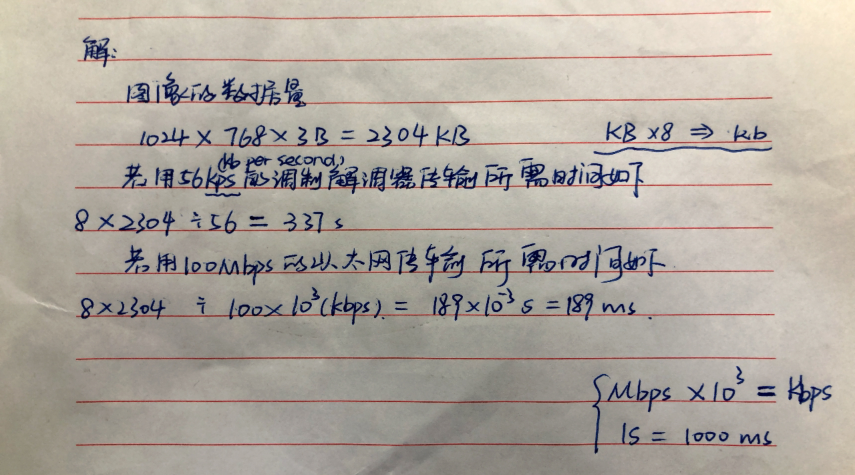 解:
图像的数据量
1024 × 768 × 3B = 2304 KB
KB ×8 ⇒ kb
(kb per second)
若用56kps的调制解调器传输所需时间如下
8 × 2304 ÷ 56 = 337 s
若用100Mbps的以太网传输所需时间如下
8 × 2304 ÷ 100 × 10³ (kbps) = 189 × 10⁻³ s = 189 ms.
Mbps × 10³ = kbps
1s = 1000 ms